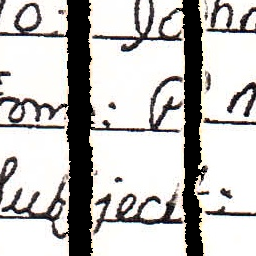 To: John
From: P
Subject: